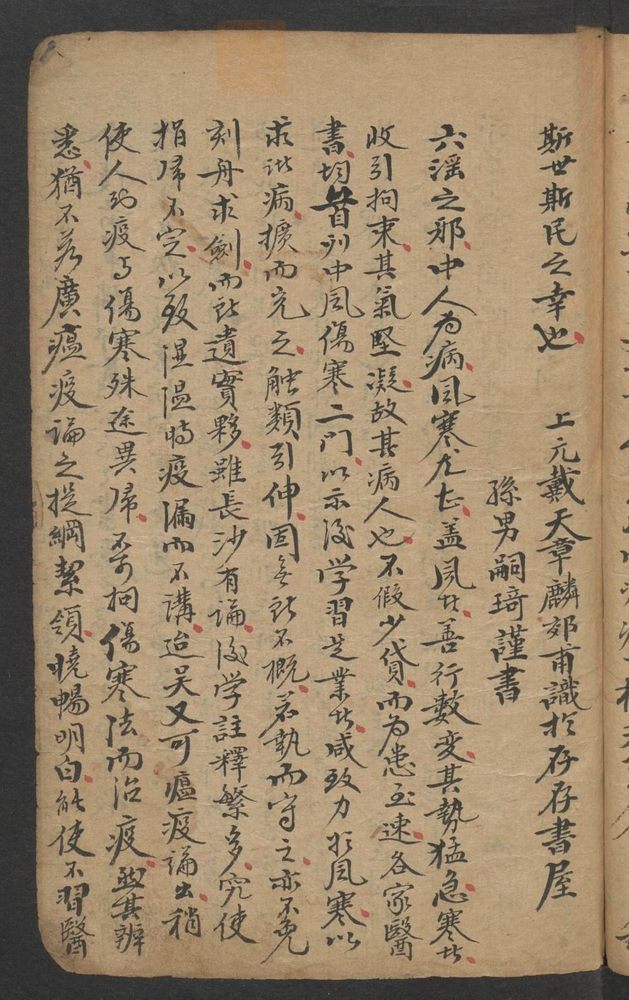 斯世斯民之幸也　上元戴天章麟郊甫識於存存書屋
孫男嗣琦謹書
六淫之邪中人為病風寒尤甚盖風者善行數变其勢猛急寒者
收引拘束其氣堅凝故其病人也不假少貸而為患至速各家醫
書均首列中風傷寒二門以示後学習是業者咸致力於風寒以
求治病擴而充之触類引伸固無所不概若執而守之亦不免
刻舟求劍而所遺實夥雖長沙有論後学註釋繁多究使
指歸不定以致湿温時疫漏而不講迨吴又可瘟疫論出稍
使人知疫与傷寒殊途異歸不可拘傷寒法而治疫與其辨
悉猶不若廣瘟疫論之提綱絜領曉暢明白能使不習醫